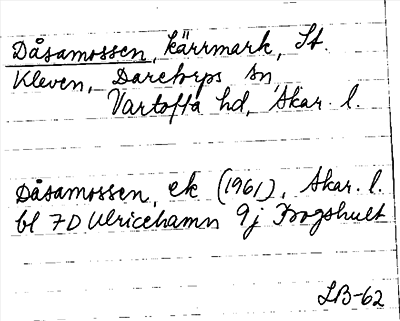 Dåsamossen, kärrmark, St.
Kleven, Daretorps sn,
Vartofta hd, Skar. l.
Dåsamossen, ek (1961), Skar. l.
bl 7D Ulricehamn 9j Krogshult
LB-62